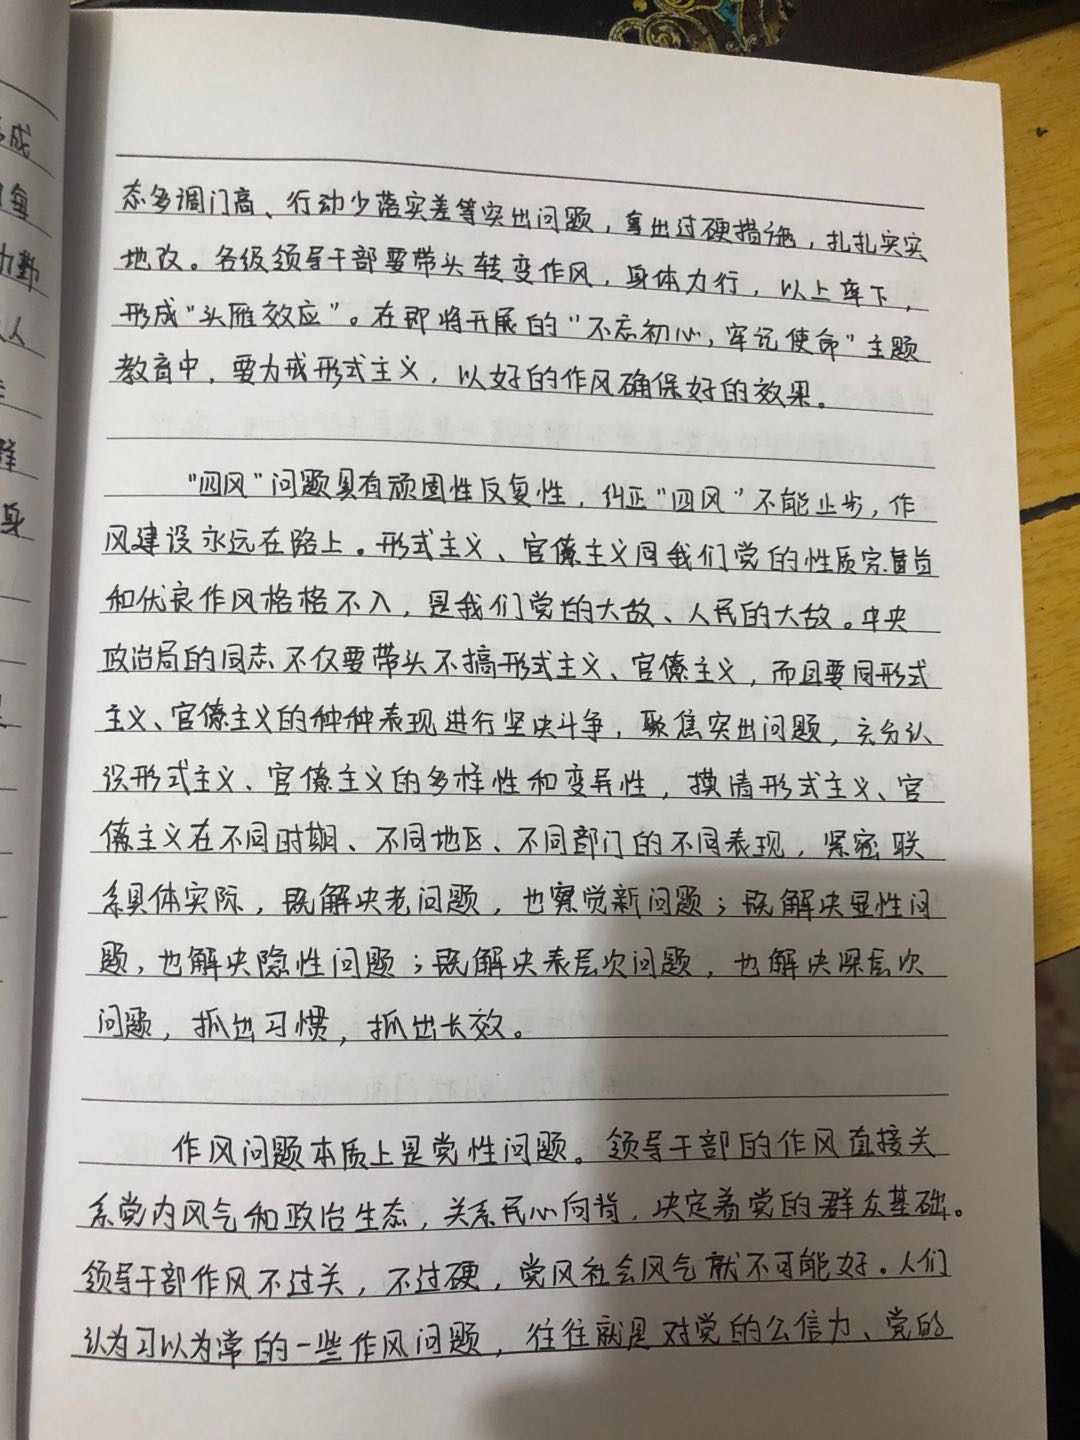 成
每
力勤
人
群
身
态多调门高、行动少落实差等突出问题，拿出过硬措施，扎扎实实
地改。各级领导干部要带头转变作风，身体力行，以上率下，
形成“头雁效应”。在即将开展的“不忘初心，牢记使命”主题
教育中，要力戒形式主义，以好的作风确保好的效果。
“四风”问题具有顽固性反复性，纠正“四风”不能止步，作
风建设永远在路上。形式主义、官僚主义同我们党的性质宗旨
和优良作风格格不入，是我们党的大敌、人民的大敌。中央
政治局的同志不仅要带头不搞形式主义、官僚主义，而且要同形式
主义、官僚主义的种种表现进行坚决斗争，聚焦突出问题，充分认
识形式主义、官僚主义的多样性和变异性，摸清形式主义、官
僚主义在不同时期、不同地区、不同部门的不同表现，紧密联
系具体实际，既解决老问题，也察觉新问题；既解决显性问
题，也解决隐性问题；既解决表层次问题，也解决深层次
问题，抓出习惯，抓出长效。
作风问题本质上是党性问题。领导干部的作风直接关
系党内风气和政治生态，关系民心向背，决定着党的群众基础。
领导干部作风不过关，不过硬，党风社会风气就不可能好。人们
认为习以为常的一些作风问题，往往就是对党的公信力、党的